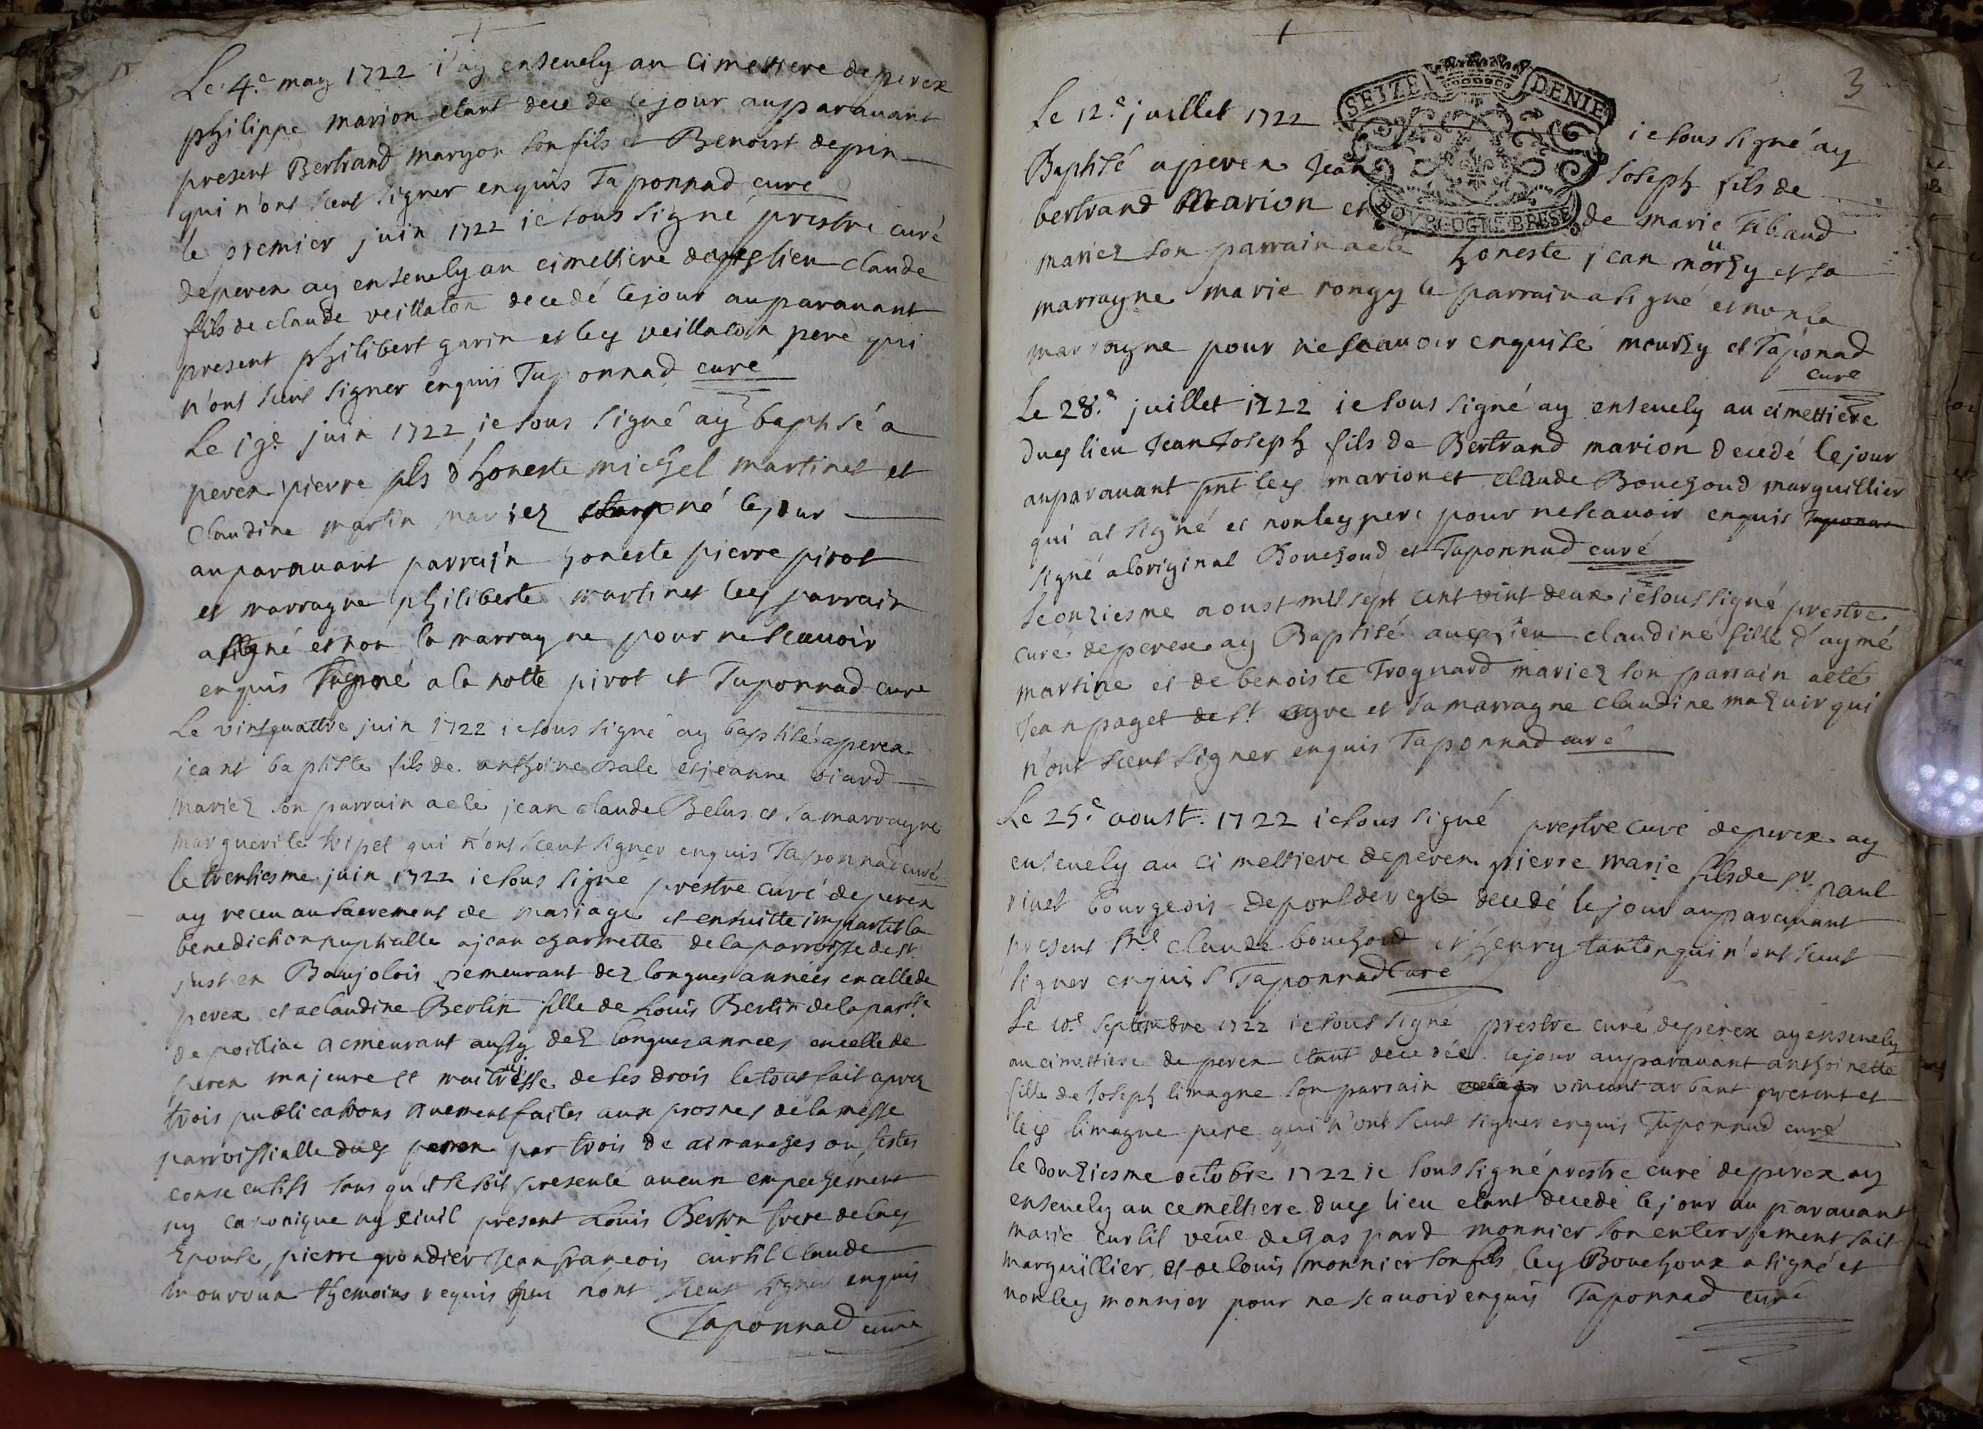 Le 4.e may 1722 j'ay ensevely au cimettiere de perex
philippe marion etant decedé le jour auparavant
present Bertrand maryon son fils et Benoist depin
qui n'ont sceut signer enquis Taponnad curé
le premier juin 1722 ie sous signé prestre curé
de perex ay ensevely au cimettiere du lieu claude
fils de claude veillaton decedé le jour auparavant
present philibert garin et ley veillaton pere qui
n'ont sceut signer enquis Taponnad curé
Le 19.e juin 1722 ie sous signé ay baptisé a
perex pierre fils d'honeste michel martinet et
claudine martin mariez né le jour
auparavant parrain honeste pierre pirot
et marragne philiberte martinet ley parrain
a signé et non la marragne pour ne scavoir
enquis signé a la notte pirot et Taponnad curé
Le vint quattre juin 1722 ie sous signé ay baptisé a perex
jeant baptiste fils de anthoine sale et jeanne viard
mariez son parrain a eté jean claude Belus et sa marragne
marguerite tripet qui n'ont sceut signer enquis Taponnad curé
le trentiesme juin 1722 ie sous signe prestre curé de perex
ay receu au sacrement de mariage et ensuitte impartit la
benediction nuptialle a jean charmette de la parroisse de st
just en Baujolois demeurant dez longues années en celle de
perex et a claudine Bertin fille de Louis Bertin de la parsse
de poilliac demeurant aussy dez longues années en celle de
perex majeure et maitresse de ses drois le tout fait aprez
trois publications faites aux prosnes de la messe
parroissialle du perex par trois dimanches ou festes
consecutifs sans qu'il se soit presenté aucun empechement
ny canonique ny civil present Louis Bertin frere de laey
Epouse, pierre grondier Jean françois curtil claude
mouroux themoins requis qui n'ont sceut signer enquis
Taponnad curé
3
SEIZE DENIE
BOURGOGNE BRESSE
Le 12.e juillet 1722 ie sous signé ay
Baptisé a perex Jean Joseph fils de
bertrand Marion et de marie Tibaud
mariez son parrain a eté honeste jean mörzy et sa
marragne marie rongy le parrain a signé et non la
marragne pour ne scavoir enquise mourzy et Taponad
curé
Le 28.e juillet 1722 ie sous signé ay ensevely au cimettiere
duey lieu Jean Joseph fils de Bertrand marion decedé le jour
auparavant pnt ley marion et claude Bouchoud marguillier
qui at signé et non ley pere pour ne scavoir enquis
signé a l'original Bouchoud et Taponnad curé
le onziesme aoust mil sept cent vint deux ie sous signé prestre
curé de perex ay Baptisé auey lieu claudine fille d'aymé
martine et de benoiste Trognard mariez son parrain a eté
Jean paget de st agre et sa marragne claudine mazuir qui
n'ont sceut signer enquis Taponnad curé
Le 25.e aoust. 1722 ie sous signé prestre curé de perex ay
ensevely au cimettiere de perex pierre marie fils de sr. paul
rivet bourgeois de pont de vesle decedé le jour auparavant
present claude bouchoud et henry tanton qui n'ont sceut
signer enquis Taponnad curé
Le 10.e septembre 1722 ie sous signé prestre curé de perex ay ensevely
au cimettiere de perex etant decedée le jour auparavant anthoinette
fille de Joseph limagne son parrain vincent arbant present et
ley limagne pere qui n'ont sceut signer enquis Taponnad curé
le douziesme octobre 1722 ie sous signé prestre curé de perex ay
ensevely au cemettiere duey lieu etant decedé le jour auparavant
marie curtil veüe de gaspard monnier son enterrement fait
marguillier et de louis monnier son fils ley Bouchoux a signé et
non ley monnier pour ne scavoir enquis Taponnad curé